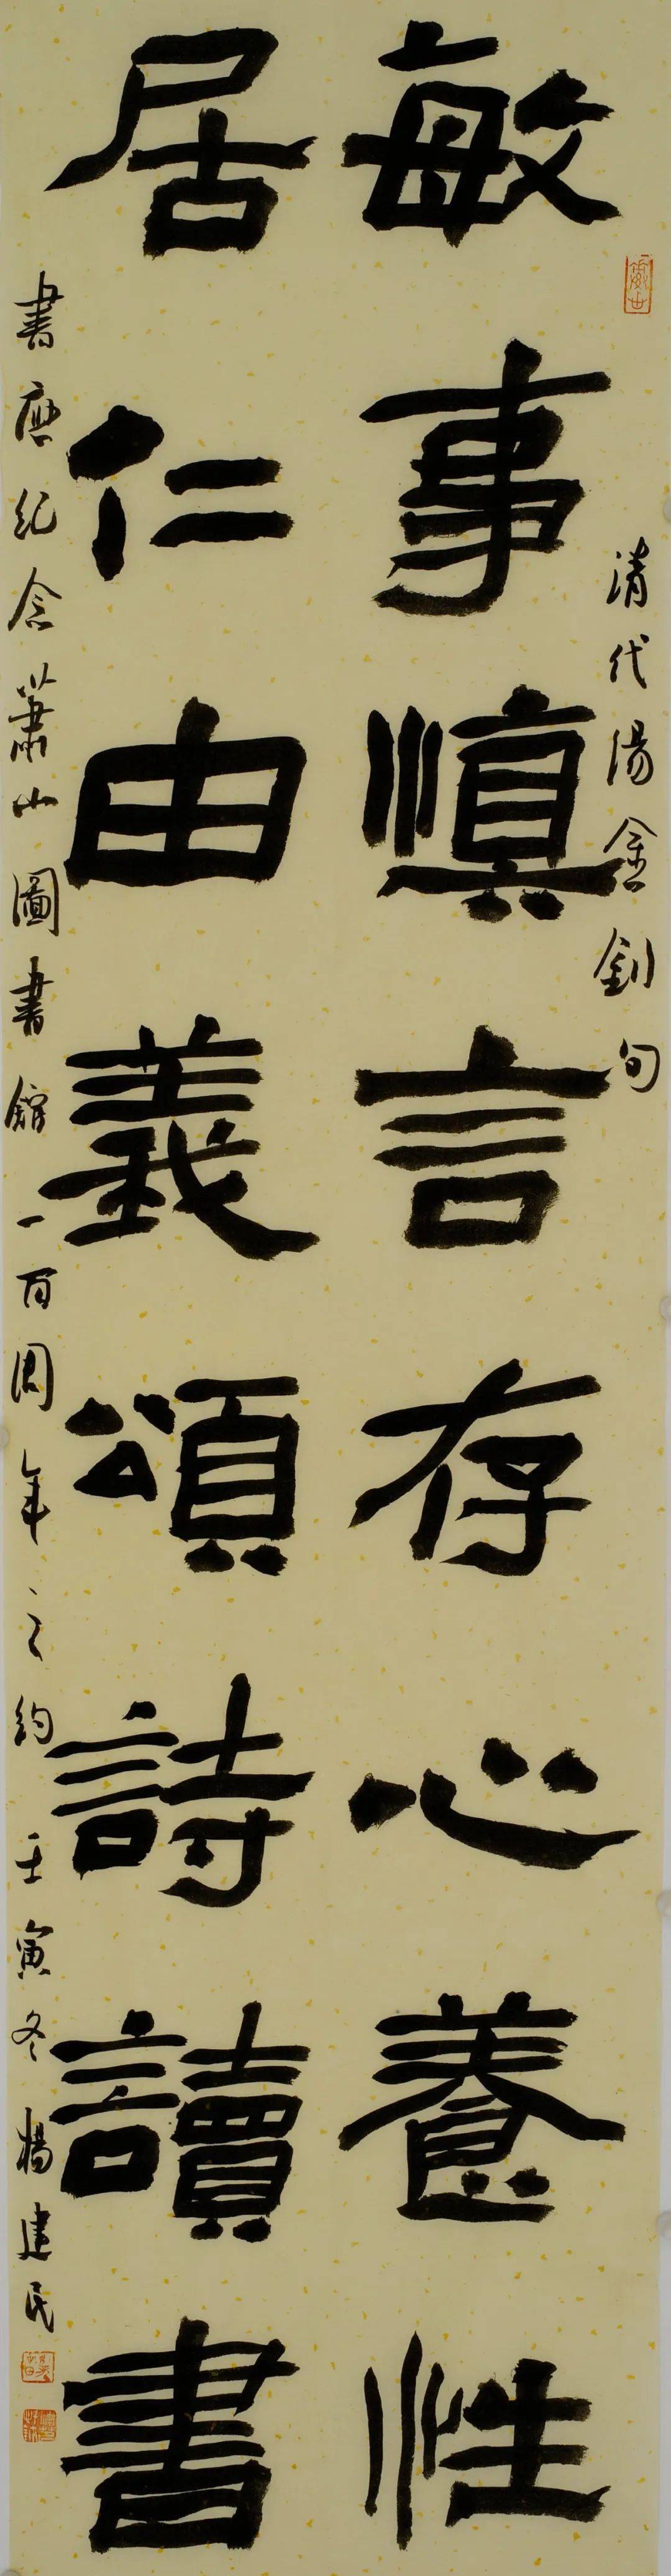 清代湯金釗句
敏事慎言存心養性
居仁由義頌詩讀書
書應紀念蕭山圖書館一百周年之約 壬寅冬 楊建民